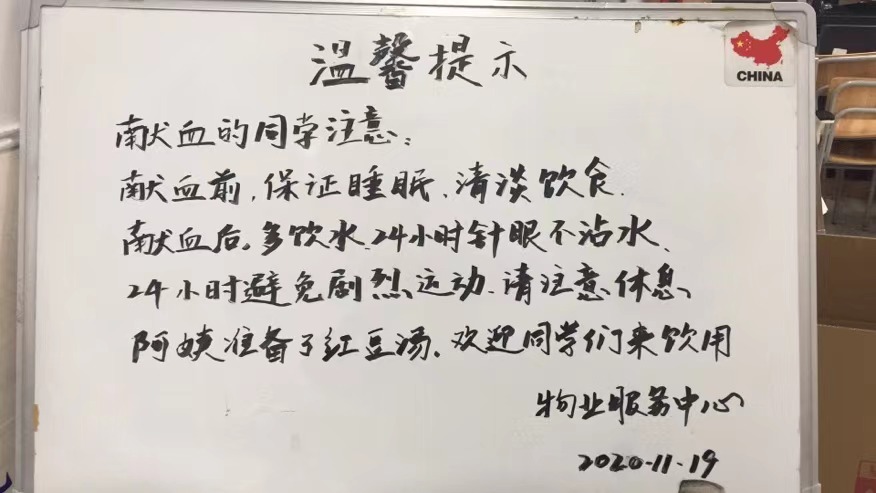 温馨提示
CHINA
献血的同学注意:
献血前,保证睡眠、清淡饮食.
献血后,多饮水.24小时针眼不沾水、
24小时避免剧烈运动、请注意休息、
阿姨准备了红豆汤、欢迎同学们来饮用
物业服务中心
2020.11.19